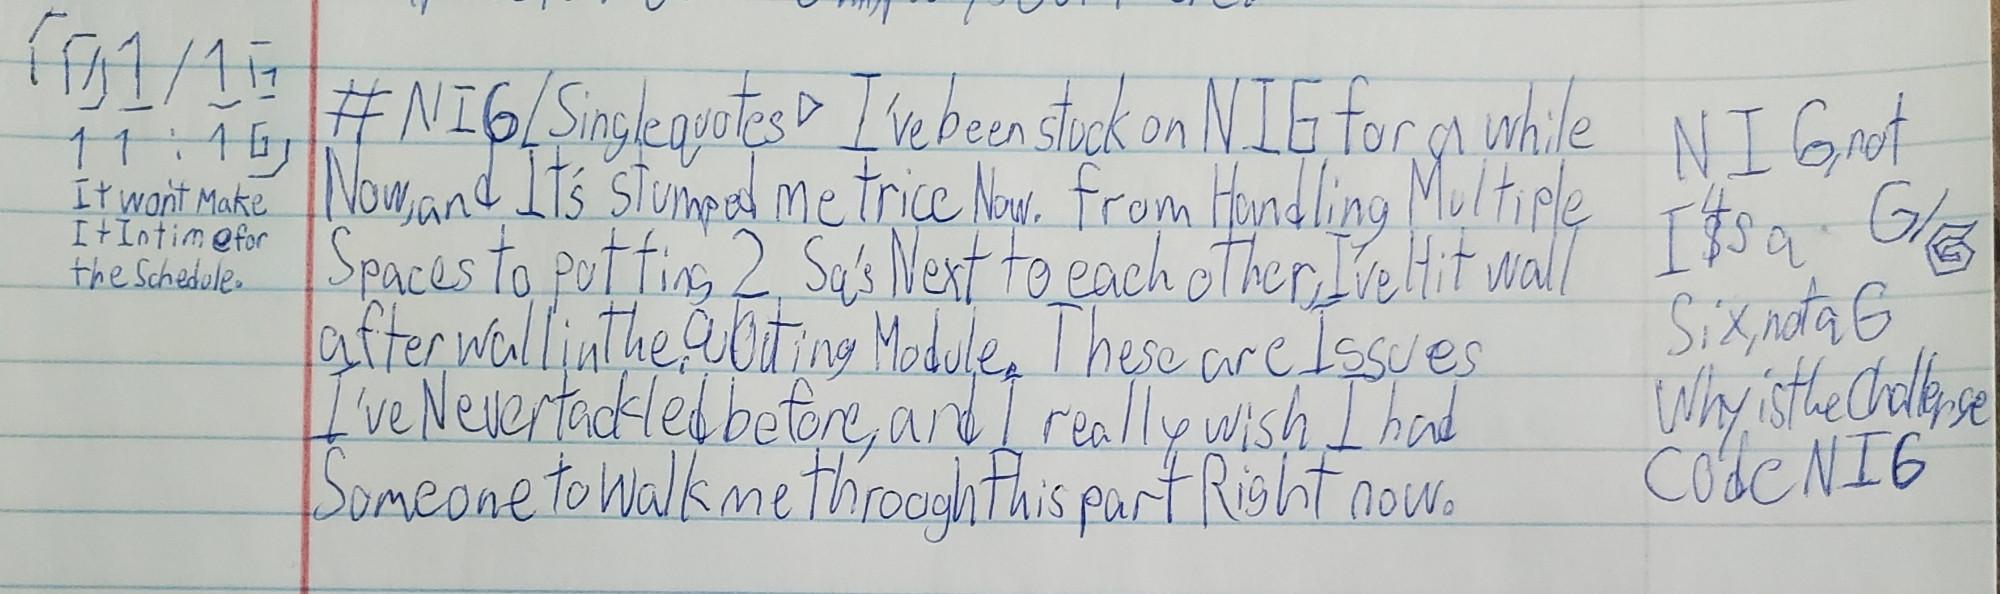 11:16
It won't Make
It Intime for
the Schedule.
#NI6/Singlequotes▷ I've been stuck on NI6 for a while
Now, and It's stumped me trice Now. From Handling Multiple
Spaces to putting 2 Sq's Next to each other, I've Hit wall
after wall in the Quoting Module. These are Issues
I've Never tackled before, and I really wish I had
Someone to Walk me through this part Right now.
NI6, not
G/6
Six, not a G
Why is the Challenge
Code NI6